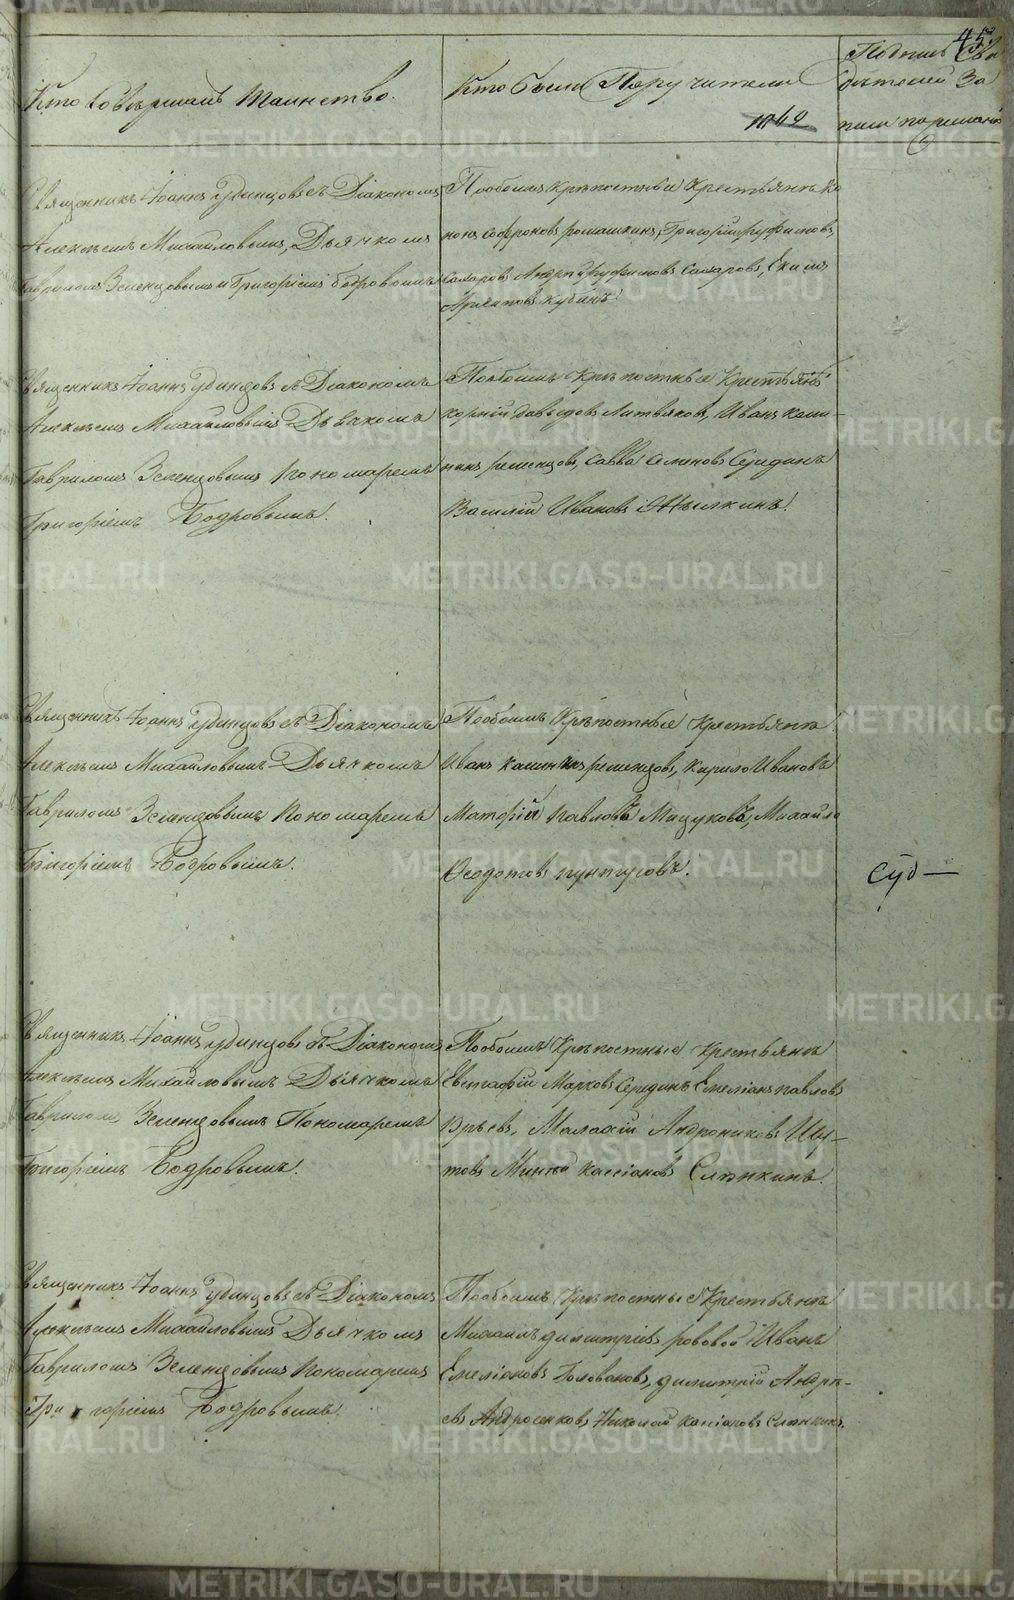 45
Кто Совершалъ Таинство.
Кто были Поручители
Подпись Сви
дѣтелей За
писи по желанію
1042
Священникъ Іоаннъ Удинцовъ съ Діакономъ
Алексѣемъ Михайловымъ, Дьячкомъ
Гавриломъ Зеленцовымъ и Григоріемъ Бодровымъ
Пообоимъ Крѣпостныи Крестьянѣ Ко
нонъ Софроновъ ромашкинъ, Григорій руфимовъ,
Сахаровъ Андрѣй руфимовъ Сахаровъ, Екимъ
Архиповъ Кубинъ.
Священникъ Іоаннъ Удинцовъ съ Діакономъ
Алексѣемъ Михайловымъ Дьячкомъ
Гавриломъ Зеленцовымъ Пономаремъ
Григоріемъ Бодровымъ.
Пообоимъ Крѣпостные Крестьянѣ
корнѣй Давыдовъ Литвяковъ, Иванъ кали-
нинъ ременцовъ, Савва Семеновъ Серединъ
Василій Ивановъ Мылкинъ.
Священникъ Іоаннъ Удинцовъ съ Діакономъ
Алексѣемъ Михайловымъ Дьячкомъ
Гавриломъ Зеленцовымъ Пономаремъ
Григоріемъ Бодровымъ.
Пообоимъ Крѣпостные крестьянѣ
Иванъ Калининъ ременцовъ, Кирило Ивановъ
Матфѣй Павловъ Мицуковъ, Михайло
Ѳеодотовъ пунтусовъ.
Суд—
Священникъ Іоаннъ Удинцовъ съ Діакономъ
Алексѣемъ Михайловымъ Дьячкомъ
Гавриломъ Зеленцовымъ Пономаремъ
Григоріемъ Бодровымъ.
Пообоимъ Крѣпостные крестьянѣ
Евграфій Марковъ Серединъ Емеліанъ павловъ
Малахій Андрониковъ Шу-
товъ Кассіановъ Сляпкинъ.
Священникъ Іоаннъ Удинцовъ съ Діакономъ
Алексѣемъ Михайловымъ Дьячкомъ
Гавриломъ Зеленцовымъ Пономаремъ
Григоріемъ Бодровымъ
Пообоимъ Крѣпостные Крестьянѣ
Михаилъ димитріевъ ровової Иванъ
Емеліановъ Головановъ, димитрій Андрѣ-
евъ Андросенковъ, Николай кассіановъ Сляпкинъ.
METRIKI.GASO-URAL.RU